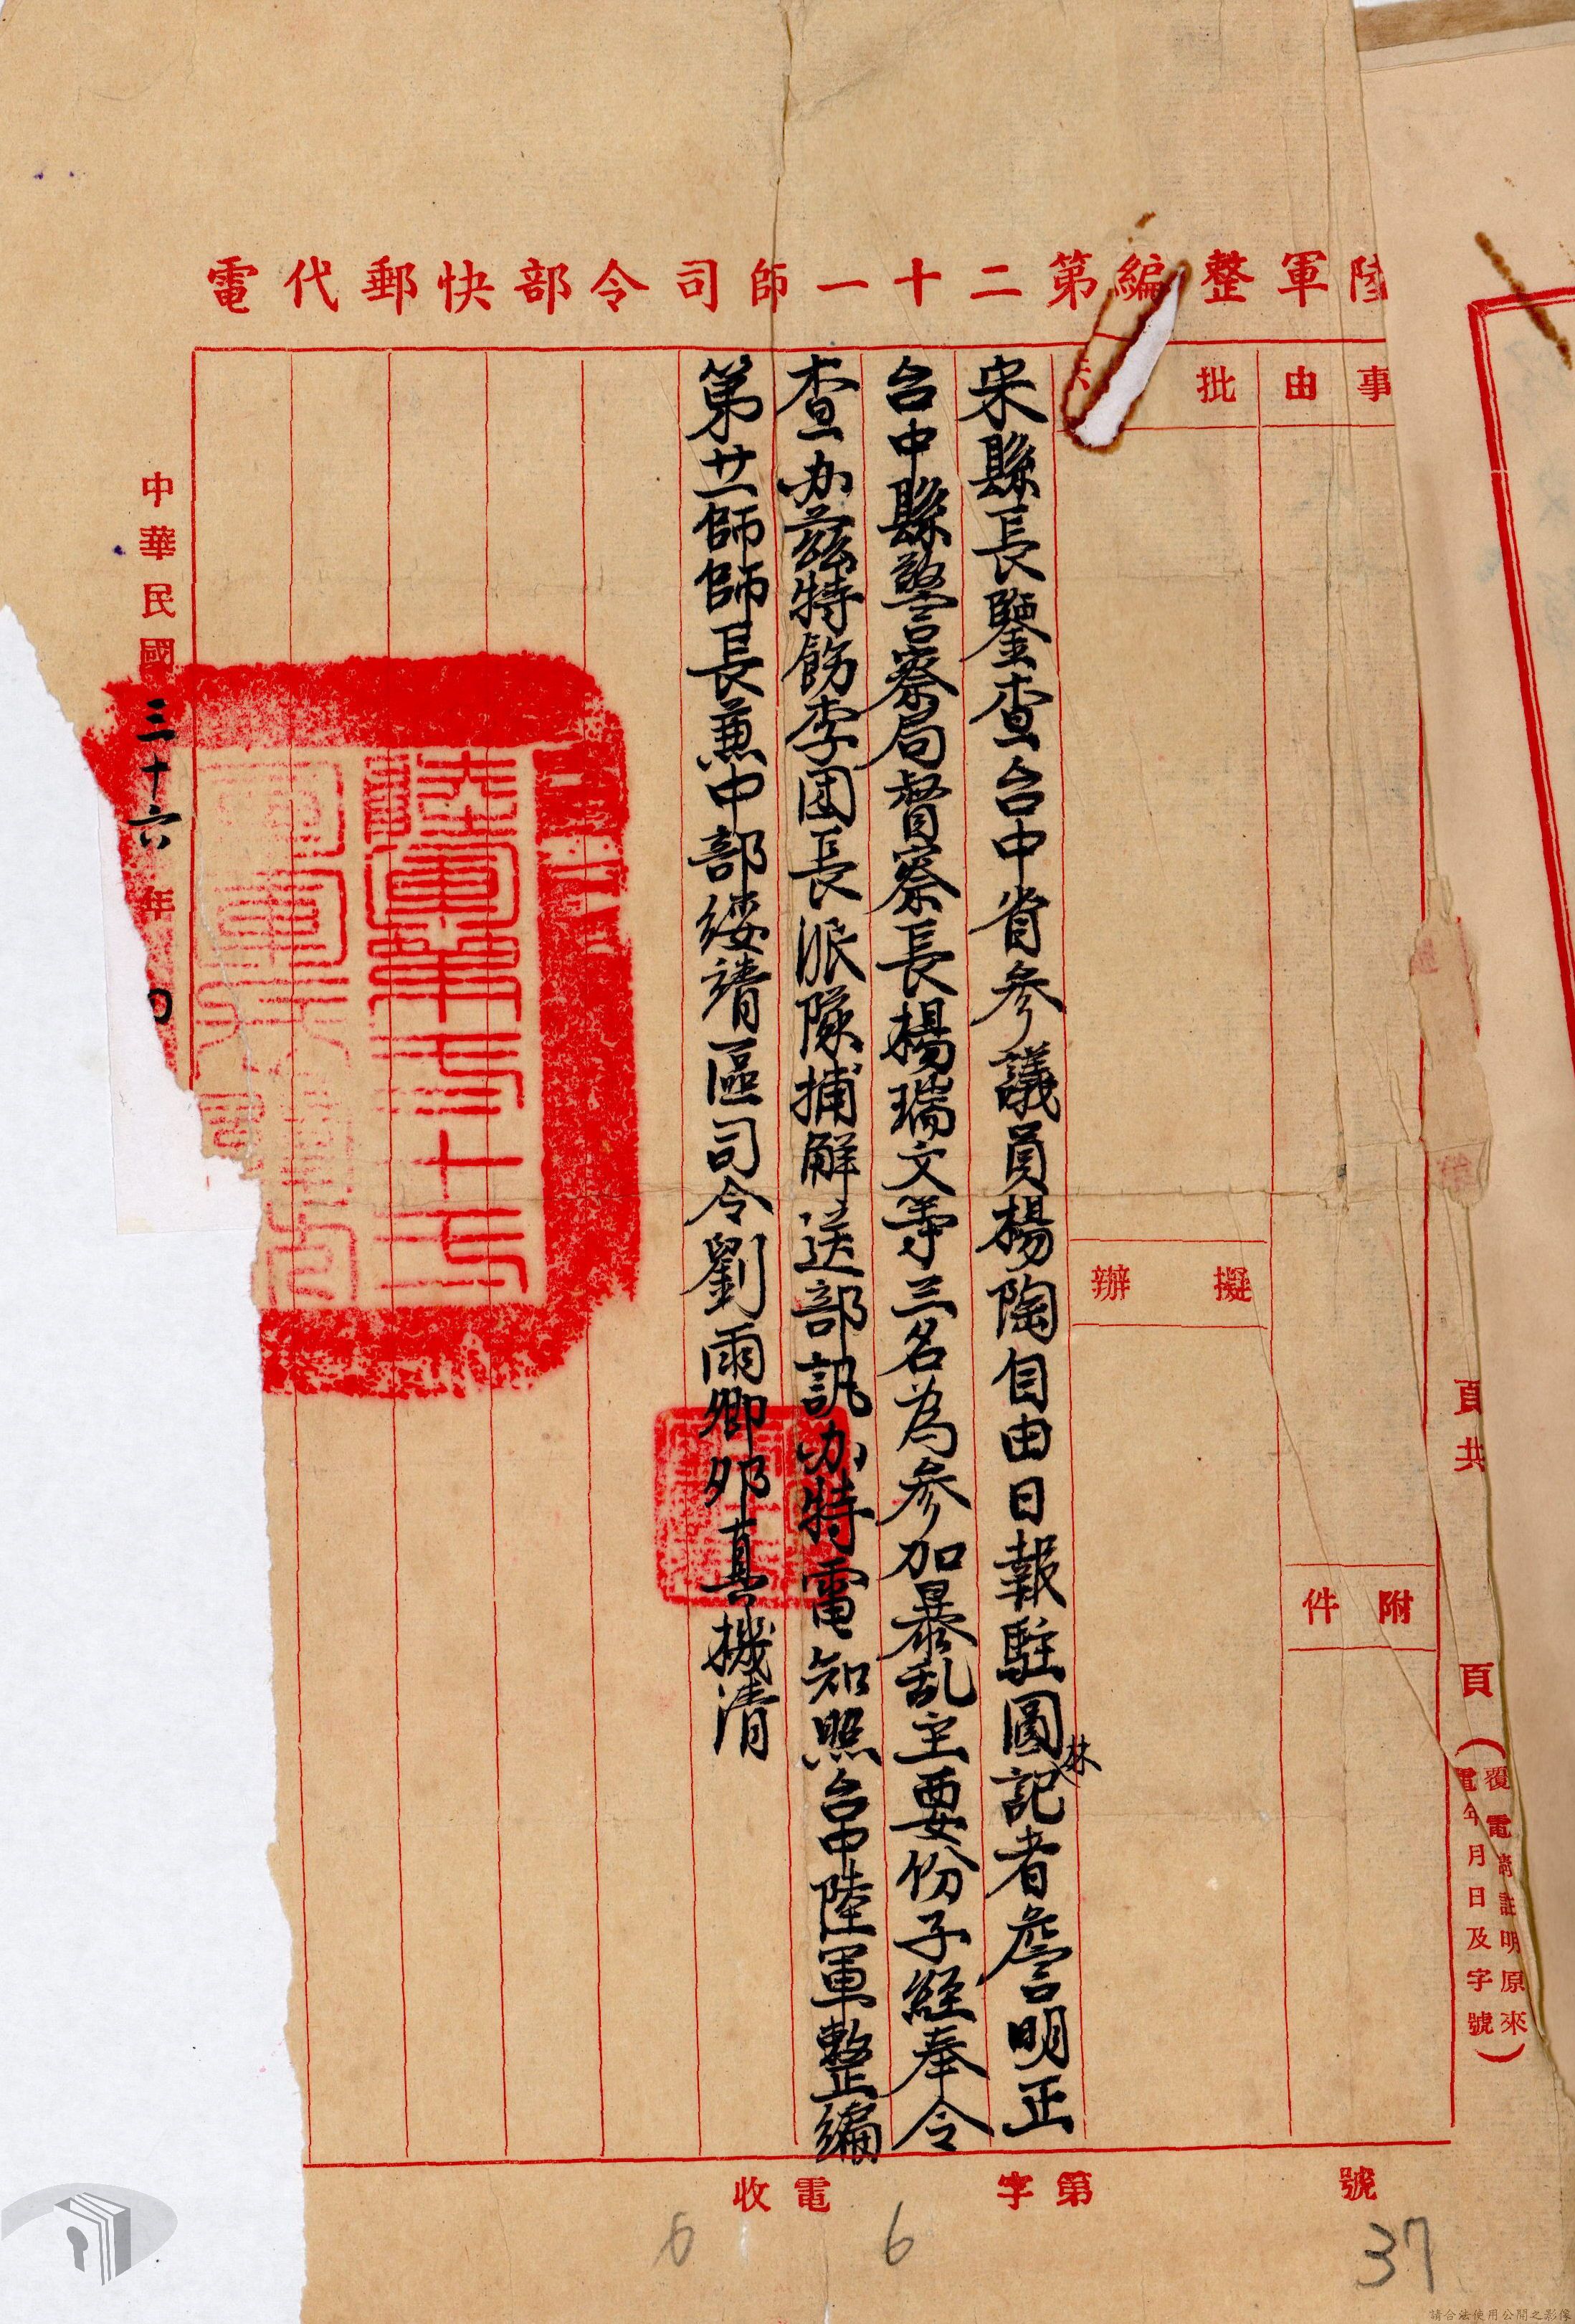 陸軍整編第二十一師司令部快郵代電
事由
批
附件
擬辦
宋縣長鑒查台中省參議員楊陶自由日報駐圓林記者詹明正
台中縣警察局督察長楊瑞文等三名為參加暴乱主要份子經奉令
查办兹特飭李团長派隊捕解送部訊办特電知照台中陸軍整編
第廿一師師長兼中部綏靖區司令劉雨卿夘真機清
中華民國三十六年
頁共
頁(覆電請註明原來電年月日及字號)
號
第字
電收
6
6
37
請合法使用公開之影像